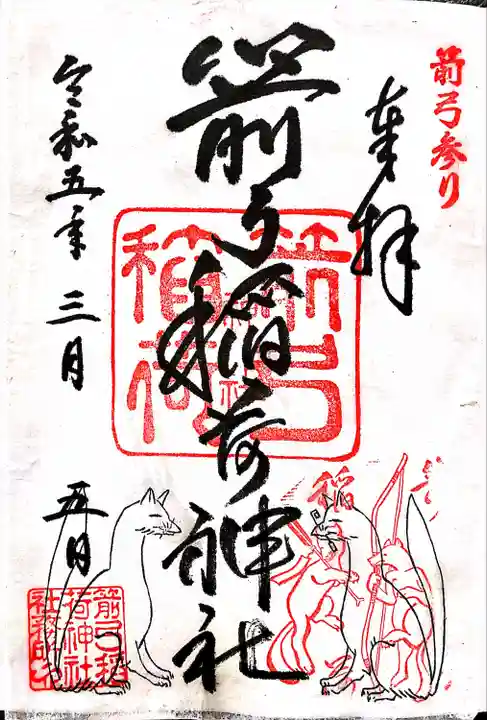 箭弓参り
奉拝
箭弓稲荷神社
箭弓
稲荷
令和五年三月
五日
箭弓稲
荷神社
社務所